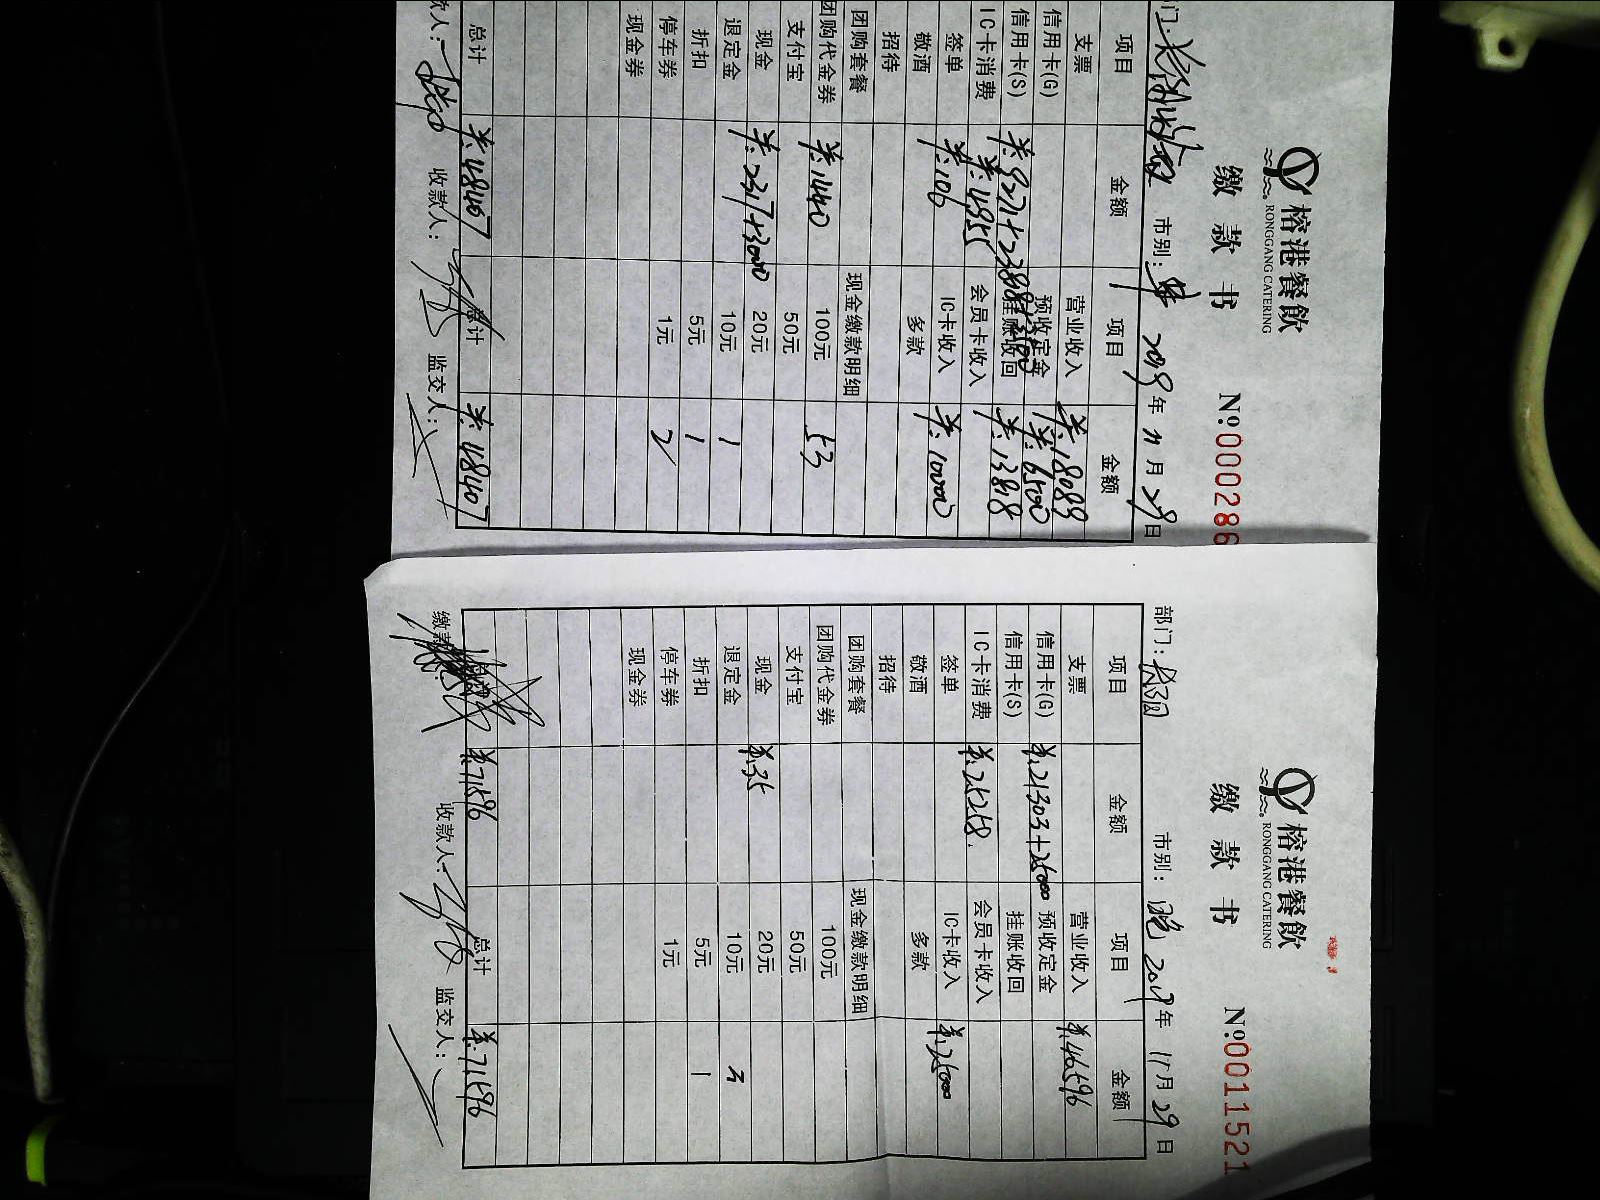 榕港餐飲
RONGGANG CATERING
缴款书
№:000286
市别: 2019年11月29日
项目 金额 项目 金额
支票 营业收入 ¥:18089
信用卡(G) 预收定金 ¥:6500
信用卡(S) 挂账收回 ¥:13818
IC卡消费 ¥:4955 会员卡收入
签单 ¥:106 IC卡收入 ¥:10000
敬酒 多款
招待
团购套餐 现金缴款明细
团购代金券 ¥:1440 100元 53
支付宝 50元
现金 ¥:2317+3000 20元
退定金 10元 1
折扣 5元 1
停车券 1元 2
现金券
总计 ¥:48407 总计 ¥:48407
款人: 收款人: 监交人:
榕港餐飲
RONGGANG CATERING
缴款书
№:0011521
部门: 市别:晚 2019年11月29日
项目 金额 项目 金额
支票 营业收入 ¥:46596
信用卡(G) ¥:21303+25000 预收定金
信用卡(S) 挂账收回
IC卡消费 ¥:25258 会员卡收入
签单 IC卡收入 ¥:25000
敬酒 多款
招待
团购套餐 现金缴款明细
团购代金券 100元
支付宝 50元
现金 ¥:35 20元
退定金 10元 3
折扣 5元 1
停车券 1元
现金券
¥:71596 总计 ¥:71596
缴款 收款人: 监交人: